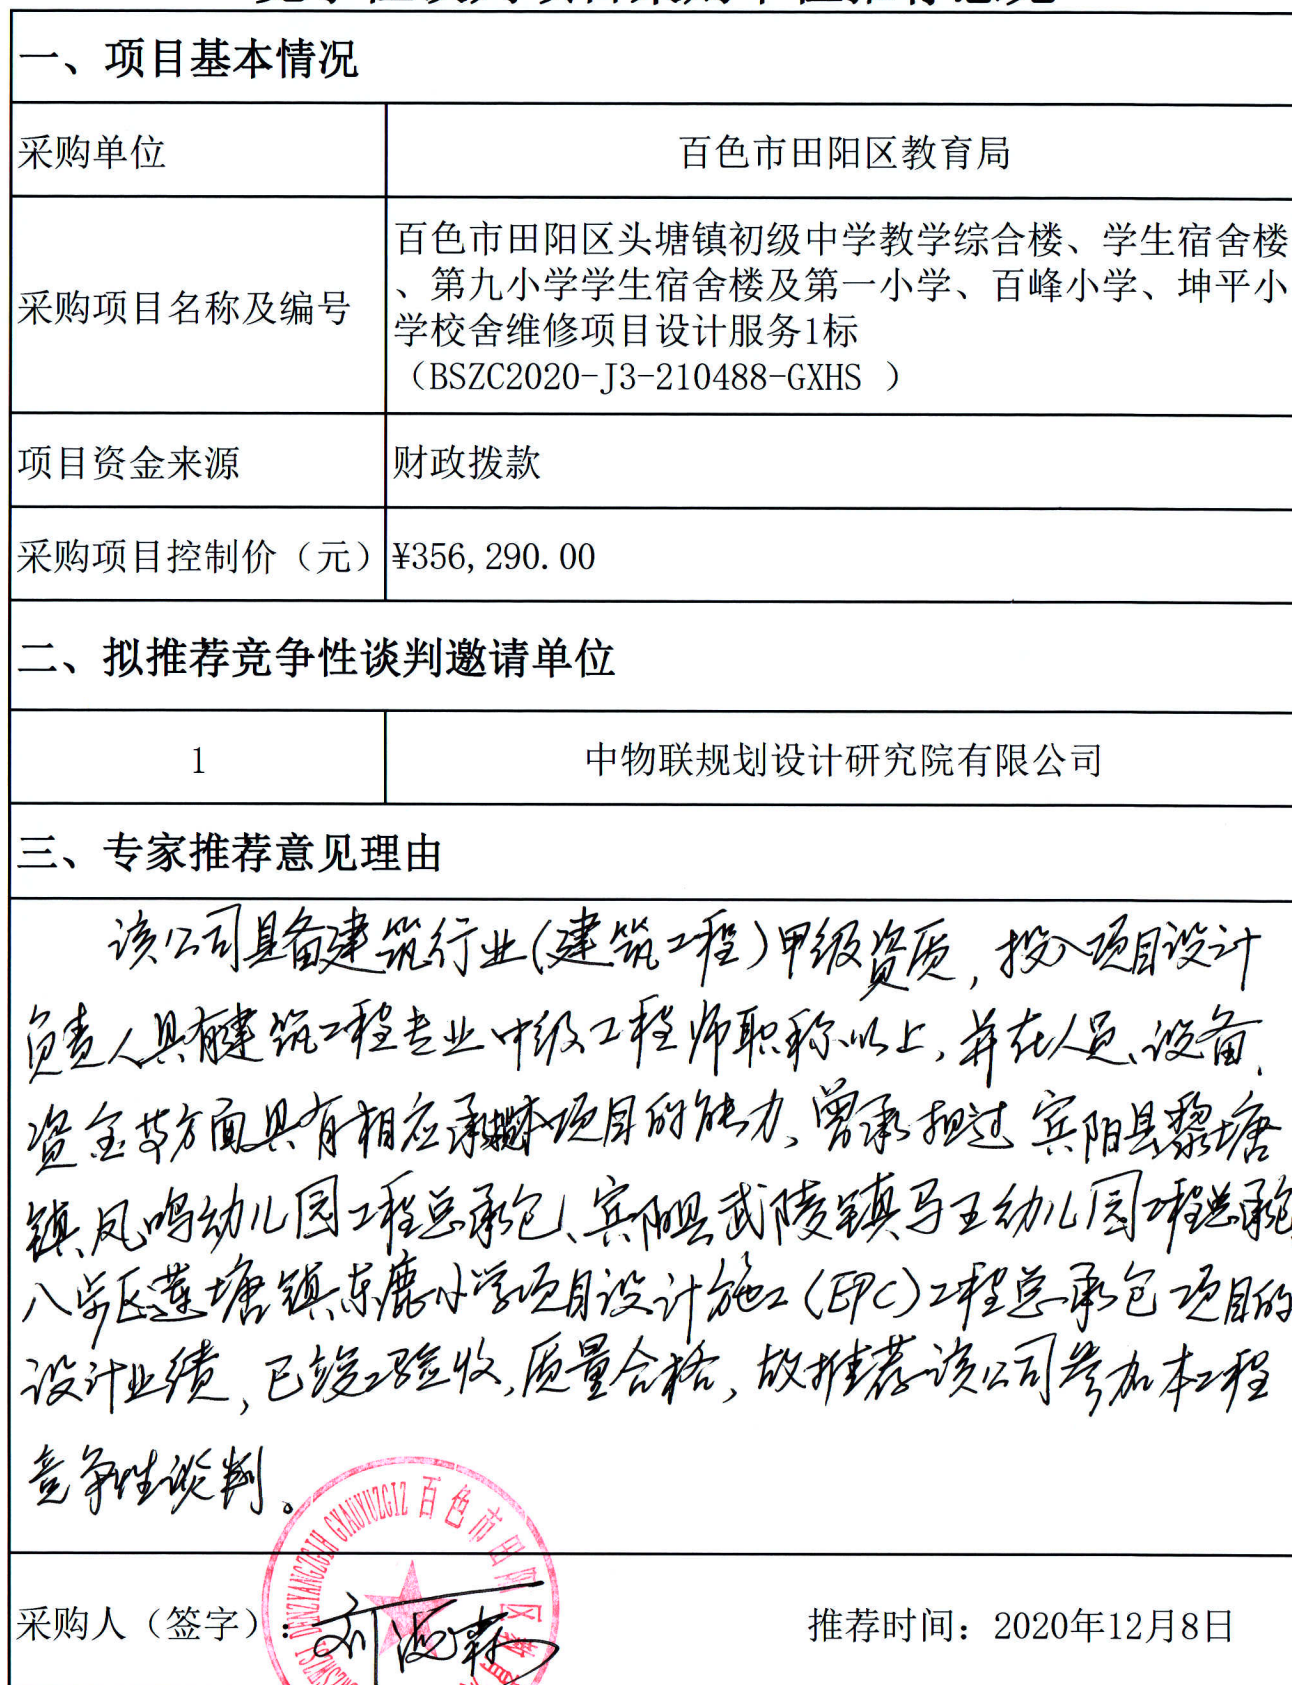 一、项目基本情况
采购单位
百色市田阳区教育局
采购项目名称及编号
百色市田阳区头塘镇初级中学教学综合楼、学生宿舍楼
、第九小学学生宿舍楼及第一小学、百峰小学、坤平小
学校舍维修项目设计服务1标
（BSZC2020-J3-210488-GXHS ）
项目资金来源
财政拨款
采购项目控制价（元）
¥356,290.00
二、拟推荐竞争性谈判邀请单位
1
中物联规划设计研究院有限公司
三、专家推荐意见理由
该公司具备建筑行业(建筑工程)甲级资质,投入项目设计
负责人具有建筑工程专业中级工程师职称以上,并在人员、设备、
资金等方面具有相应承担本项目的能力,曾承担过宾阳县黎塘
镇凤鸣幼儿园工程总承包、宾阳县武陵镇马王幼儿园工程总承包
八步区莲塘镇东鹿小学项目设计施工(EPC)工程总承包项目的
设计业绩,已竣工验收,质量合格,故推荐该公司参加本工程
竞争性谈判。
百色市田阳区教育
采购人（签字）：
推荐时间：2020年12月8日